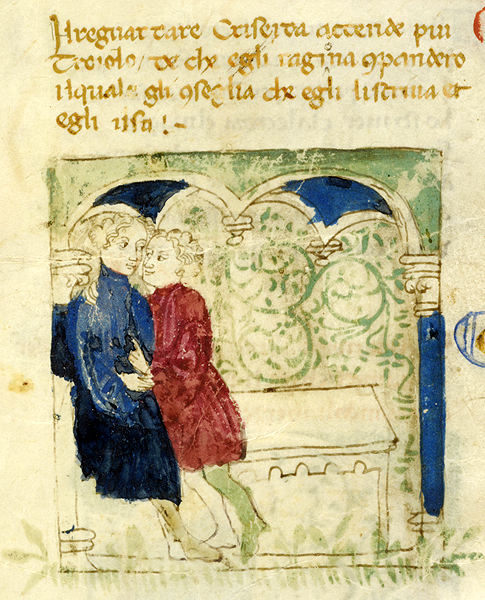 A reguardare Criseida attende piu
Troiolo / de che egli ragiona ꝯpandero
ilquale gli ꝯseglia che egli li scriua et
egli